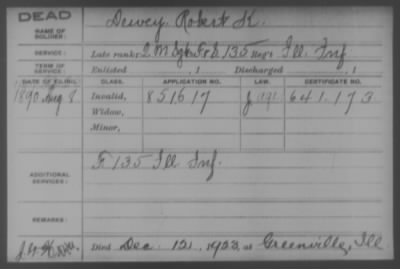 DEAD
NAME OF SOLDIER: Dewey, Robert K.
SERVICE: Late rank, Q M Sgt F&S 135 Reg't Ill. Inf.
TERM OF SERVICE: Enlisted , 1 Discharged , 1
DATE OF FILING. CLASS. APPLICATION NO. LAW. CERTIFICATE NO.
1890 Aug 8 Invalid, 851617 641.173
Widow,
Minor,
ADDITIONAL SERVICES: F 135 Ill Inf.
REMARKS:
Died Dec. 12, 1923, at Greenville, Ill